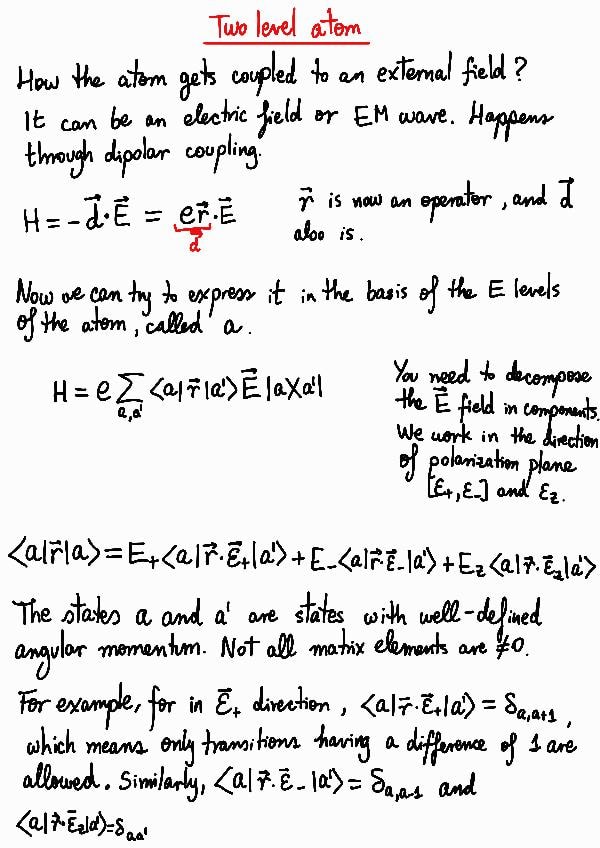 Two level atom
How the atom gets coupled to an external field?
It can be an electric field or EM wave. Happens
through dipolar coupling.
H = -d⃗·E⃗ = er⃗·E⃗
d⃗
r⃗ is now an operator, and d⃗
also is.
Now we can try to express it in the basis of the E levels
of the atom, called a.
H = e∑⟨a|r⃗|a'⟩E⃗|a⟩⟨a'|
a,a'
You need to decompose
the E⃗ field in components.
We work in the direction
of polarization plane
[ε₊,ε₋] and ε_z.
⟨a|r⃗|a⟩ = E₊⟨a|r⃗·ε⃗₊|a'⟩ + E₋⟨a|r⃗·ε⃗₋|a'⟩ + E_z⟨a|r⃗·ε⃗_z|a'⟩
The states a and a' are states with well-defined
angular momentum. Not all matrix elements are ≠0.
For example, for in ε⃗₊ direction, ⟨a|r⃗·ε⃗₊|a'⟩ = δ_a,a+1,
which means only transitions having a difference of 1 are
allowed. Similarly, ⟨a|r⃗·ε⃗₋|a'⟩ = δ_a,a-1 and
⟨a|r⃗·ε⃗_z|a'⟩=δ_aa'